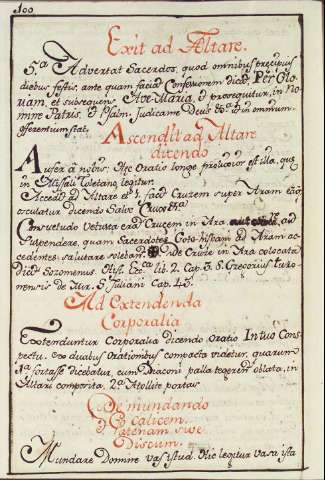 100
Exit ad Altare.
5.ª Advertat Sacerdos, quod omnibus præcipuis
diebus festis, ante quam faciat Confessionem dicat Per Glo
riam, et subsequenter Ave Maria, et prosequitur, in No
mine Patris, et Psalm. Judicame Deus &c. in omnium
offerentium stat.
Ascendit ad Altare
dicendo
Aufer à nobis: Hæc Oratio longe prolixior est illa, quæ
in Missali Toletano legitur.
Accedit ad Altare et facit Crucem super Aram
osculatur dicendo Salve Crux &ª
Consuetudo Vetus Crucem in Ara ad
Suspendere, quam Sacerdotes Goto-hispani ad Aram ac
cedentes salutare solebant. Vide Cruce in Ara colocata
dicat Sozomenus Hist. lib. 2. Cap. 3. S. Gregorius Turo
nensis de Mir. S. Juliani Cap. 43.
Ad Extendenda
Corporalia
Extenduntur Corporalia dicendo Oratio In tuo Cons
pectu, ex duabus Orationibus compacta videtur, quarum
1.ª fortasse dicebatur, cum Diaconi palla tegerent oblata, in
Altari composita. 2.ª Atollite portas
De mundando
Calicem,
Patenam, sive
Discum.
Mundare Domine vas istud. Hic legitur vasa ista